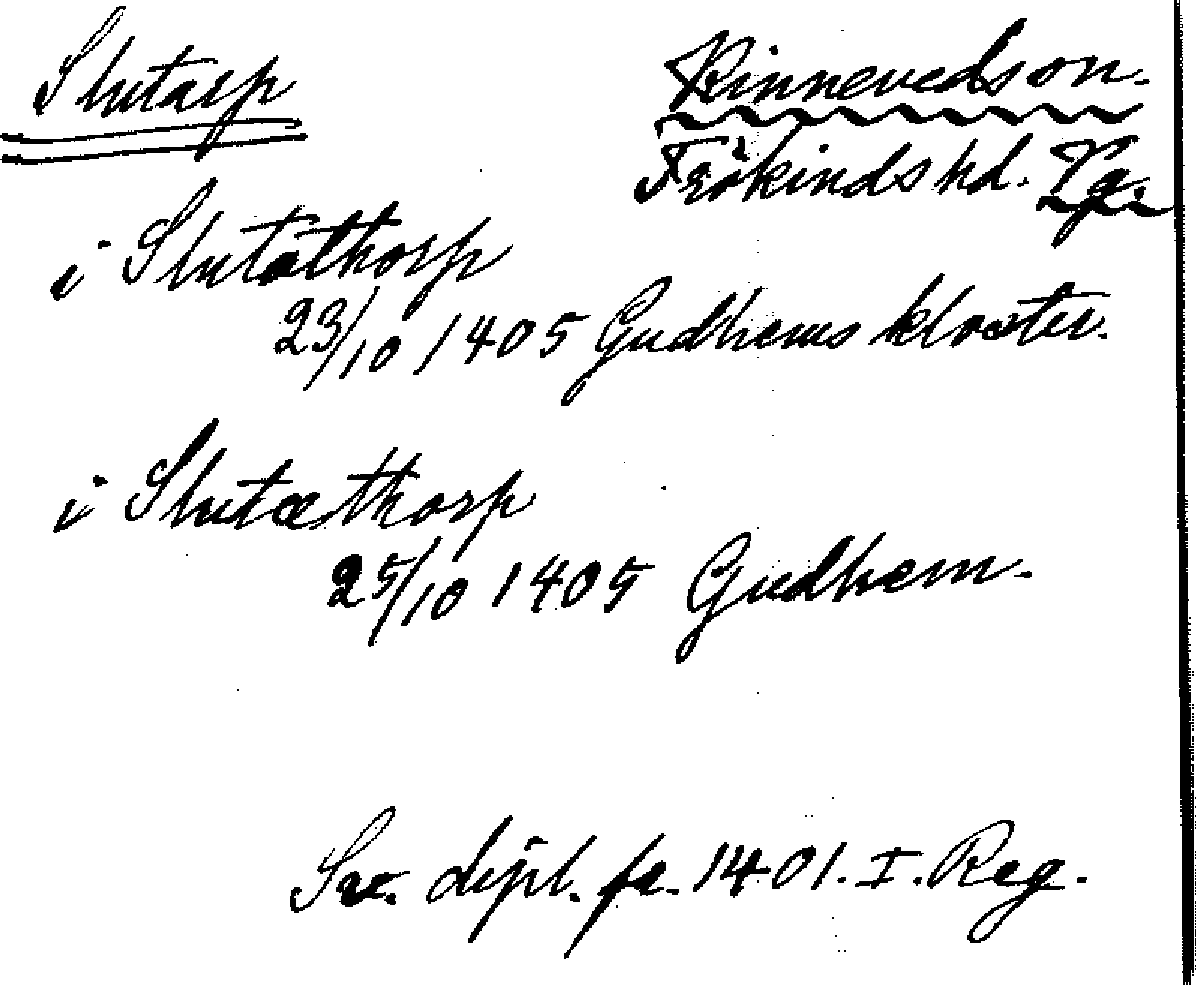 Slutarp
Kinneveds sn.
Frökinds hd. Vg.
i Slutathorp
23/10 1405 Gudhems kloster.
i Slutæthorp
25/10 1405 Gudhem.
Sv. dipl. fr. 1401. I. Reg.